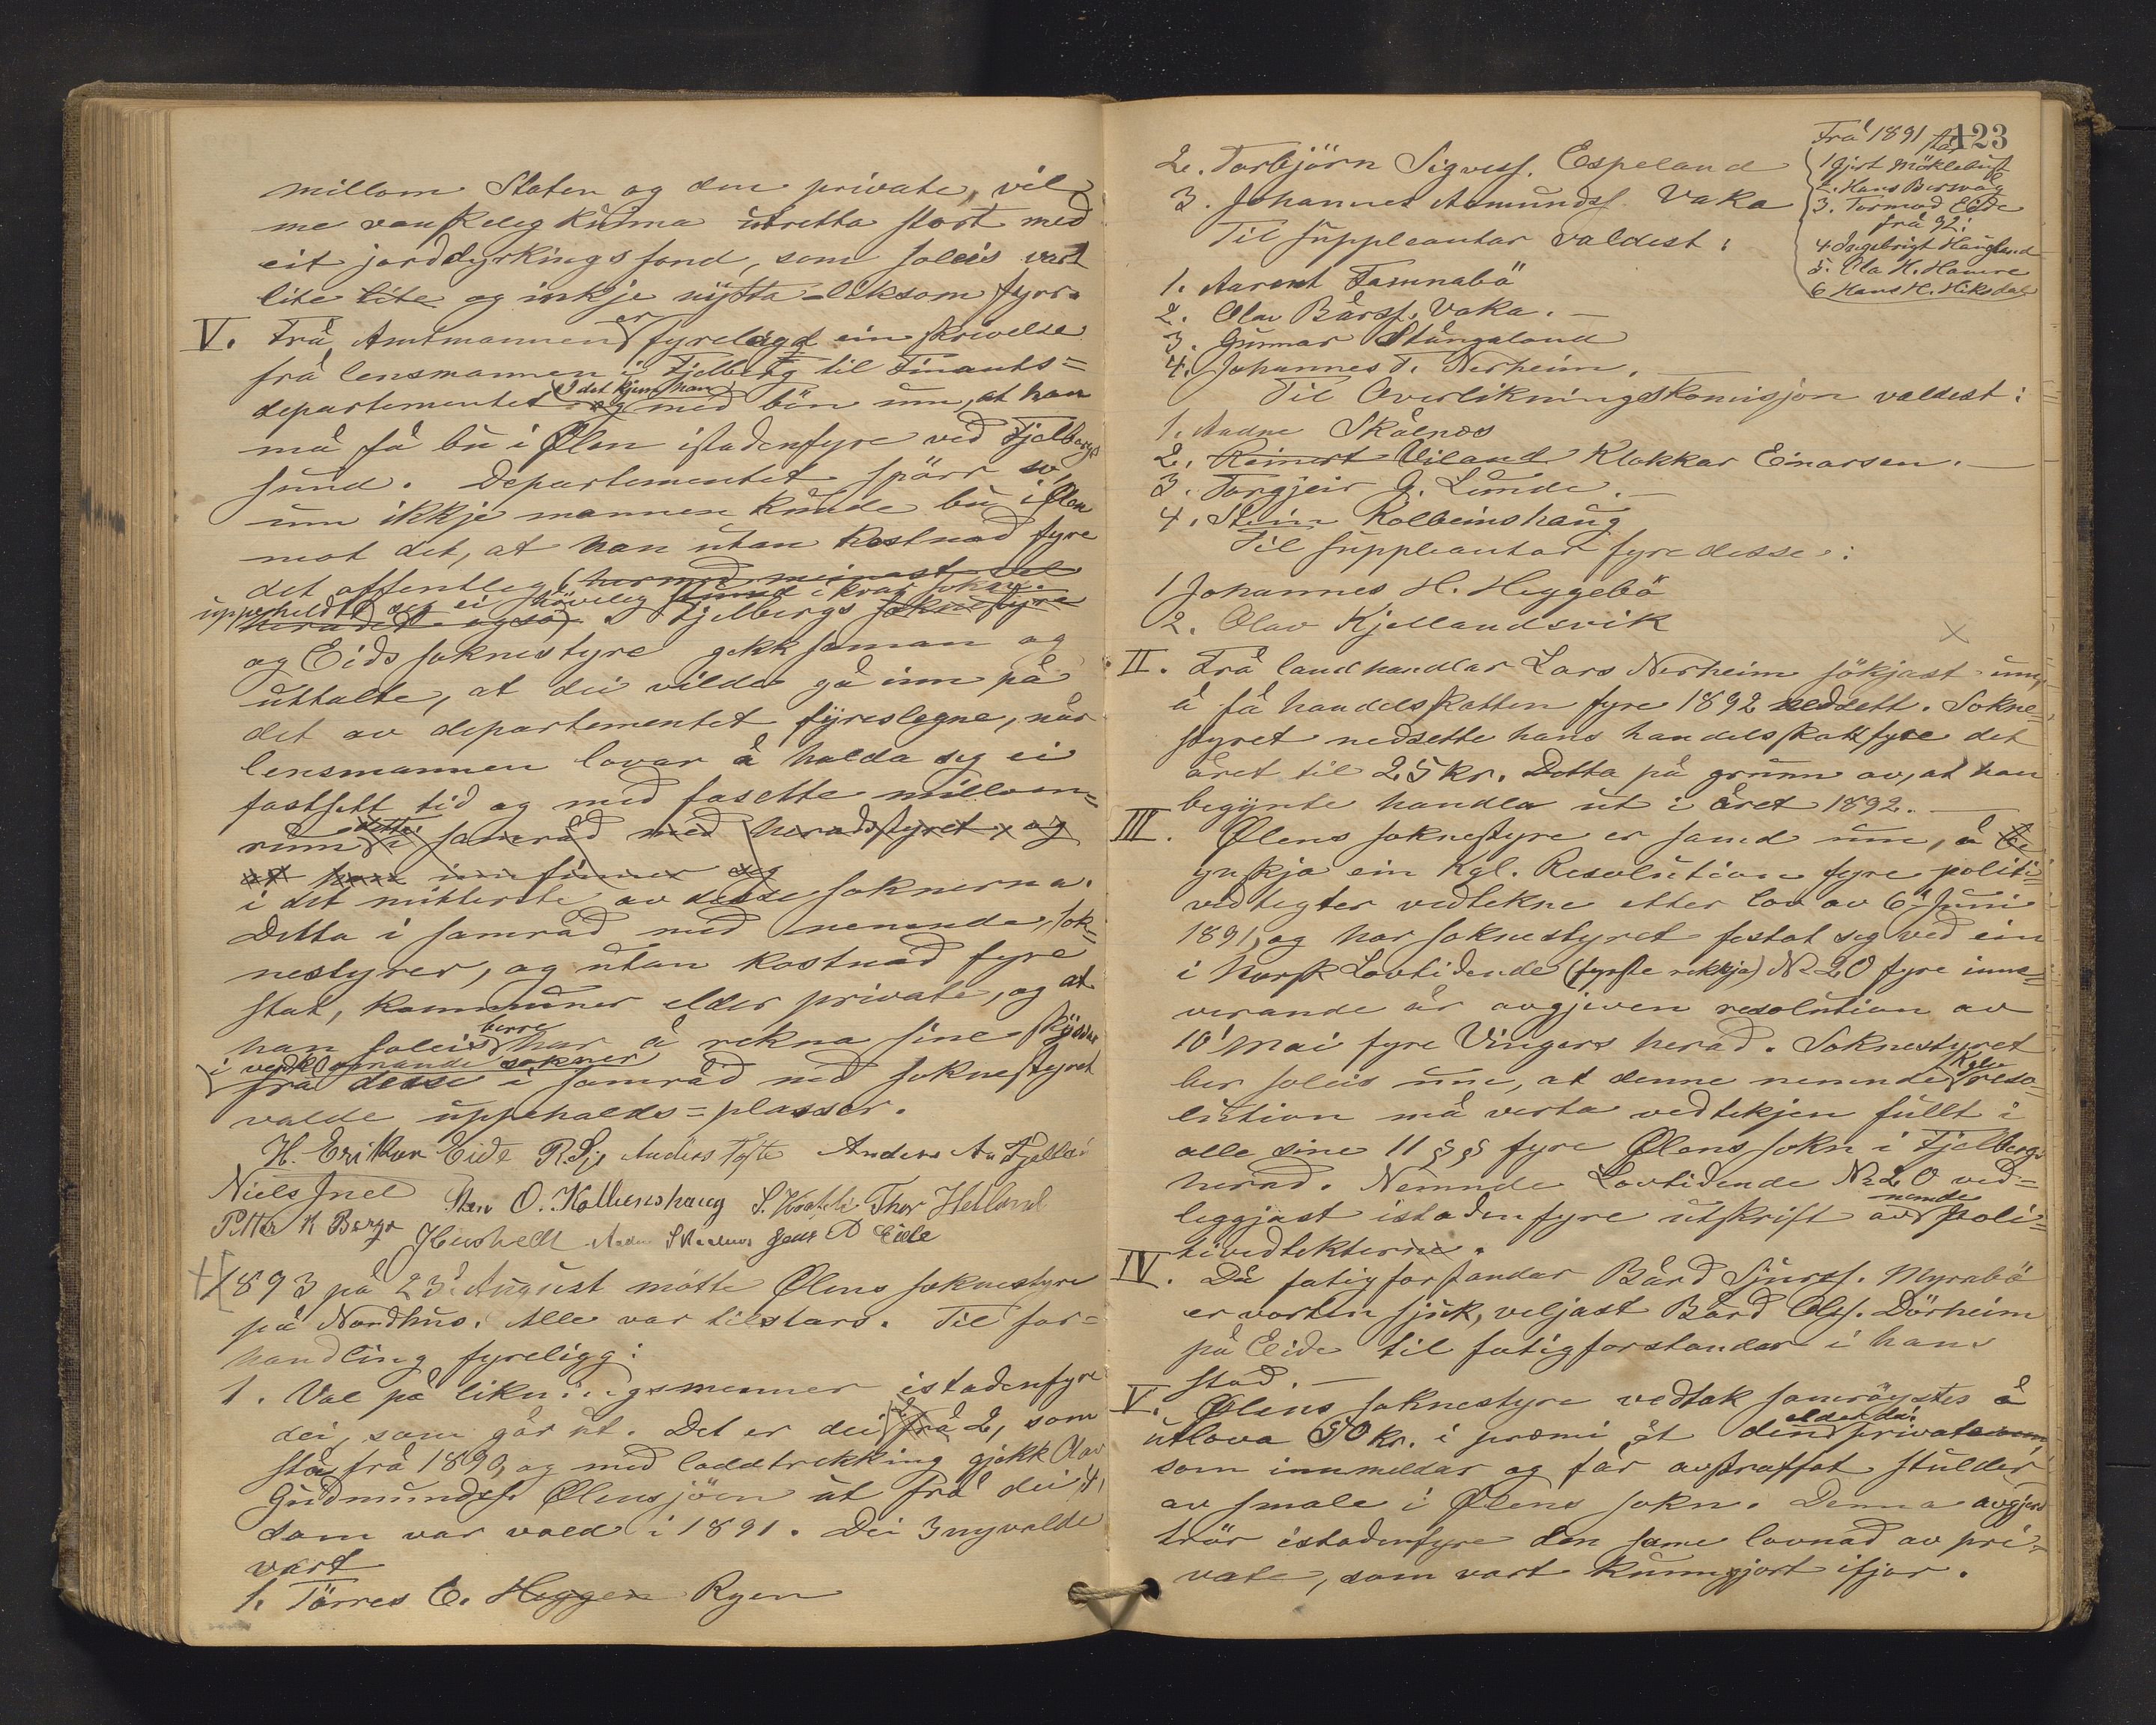 millom Staten og den private, vil
me vanskeleg kunna utretta stort med
eit jorddyrkingsfond, som soleis vart
lite lite og inkje nytta liksom fyrr.
V. Frå Amtmannen er fyrelagd ein skrivelse
frå lensmannen i Fjelberg til Finants=
departementet og i det kjem han med bön um, at han
må få bu i Ølen istadenfyre ved Fjelbergs
sund. Departementet spörr so,
um ikkje mannen kunde bu i Ølen
mot det, at han utan kostnad fyre
det offentlege (hermed meinast vel
uppeheldt seg ei höveleg stund i kvar sokn.
heradet også). Fjelbergs soknestyre
og Eids soknestyre gekk saman og
uttalte, at dei vilde gå inn på
det av departementet fyreslegne, når
lensmannen lovar å halda seg ei
fastsett tid og med fasette millom=
rum dette i samråd med heradsstyret og
at han innfinner seg
i det mitterste av desse soknerna.
Detta i samråd med nemnde sok=
nestyrer, og utan kostnad fyre
stat, kommuner elder private, og at
han soleis berre har å rekna sine skyssar
i vedkomande sokner
frå desse i samråd med soknestyret
valde uppehalds=plassar.
H. Erikson Eide R. Sje Anders Tofte Anders A. Fjelland
Niels Jnel Sten O. Kolbenshaug S. Thor Hetland
Petter K Berge J Hushedt Aadne Skaalnes Jens D Eide
1893 på 23. August mötte Ølens soknestyre
på Nordhus. Alle var tilstars. Til for=
handling fyreligg:
1. Val på likningsmenner istadenfyre
dei, som går ut. Det er dei frå 2, som
står frå 1890, og med loddtrekking gjekk Olav
Gudmundss. Ølensjöen ut frå dei 4,
som var vald i 1891. Dei 3 nyvalde
vart
1. Törres E. Heggen Ryen
123
2. Torbjörn Sigvess. Espeland
3. Johannes Aamundss. Vaka
Til suppleantar valdest:
Frå 1891 står
1 Gjert Möklebust
2. Hans Bersvåg
3. Tormod Eide
frå 92:
4. Ingebrigt Haugland
5. Ola H. Hamre
6 Hans H. Hiksdal
1. Aarent Tamnabö
2. Olav Bårss. Vaka.
3. Gunnar Stungaland
4. Johannes T. Nerheim.
Til Overlikningskomisjon valdest:
1. Aadne Skålnes
2. Reinert Viland Klokkar Einarsen.
3. Torgjeir G. Lunde.
4. Stein Kolbeinshaug
Til suppleantar fyre desse:
1 Johannes H. Heggebö
2. Olav Kjellandsvik
II. Frå landhandlar Lars Nerheim sökjast um,
å få handelsskatten fyre 1892 nedsett. Sokne=
styret nedsette hans handelsskatt fyre det
året til 25 kr. Detta på grunn av, at han
begynte handla ut i året 1892.
III. Ølens soknestyre er samd um, å be
ynskja ein Kgl. Resolution fyre politi=
vedtegter vedtekne etter lov av 6. Juni
1891, og har soknestyret festat seg ved ein
i Norsk Lovtidende (fyrste rekkja) No 20 fyre inne=
verande år avgjeven resolution av
10. Mai fyre Vingers herad. Soknestyret
ber soleis um, at denne nemnde Kgl. reso=
lution må verta vedtekjen fullt i
alle sine 11 §§ fyre Ølens sokn i Fjelbergs
herad. Nemnde Lovtidende No 20 ved=
leggjast istadenfyre utskrift av nemde poli=
tivedtekterne.
IV. Då fatigforstandar Bård Sjurss. Myrabö
er vorten sjuk, veljast Bård Olss. Dörheim
på Eide til fatigforstandar i hans
stad.
V. Ølens soknestyre vedtok samröystes å
utlova 50 kr. i præmi åt den elder dei private
som innmeldar og får avstraffat stulder
av smale i Ølens sokn. Denna avgjerd
trör istadenfyre den same lovnad av pri=
vate, som vart kunngjort ifjor.